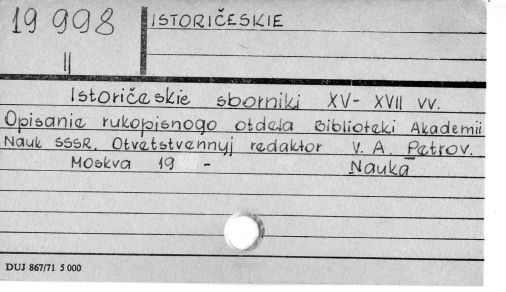 19 998
ISTORIČESKIE
II
Istoričeskie sborniki XV- XVII vv.
Opisanie rukopisnogo otdela Biblioteki Akademii
Nauk SSSR. Otvetstvennyj redaktor V. A. Petrov.
Moskva 19 - Nauka
DUJ 867/71 5 000